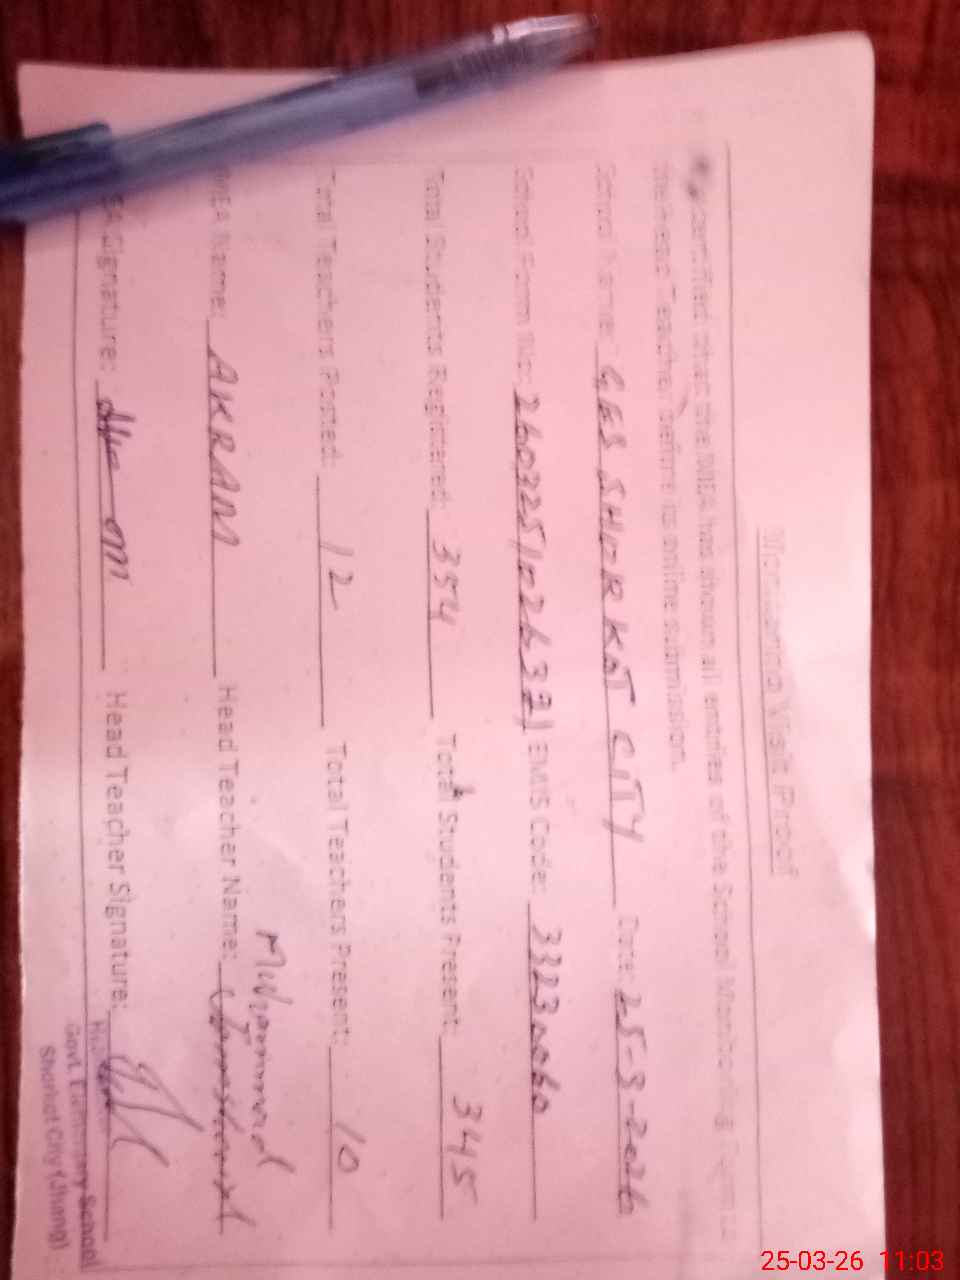 Monitoring Visit (Proof)
certified that the MEA has shown all entries of the School Monitoring Form to
the Head Teacher before its online submission.
School Name: GES SHORKOT CITY Date: 25-3-2026
School Form No: EMIS Code: 33230060
Total Students Registered: 354 Total Students Present: 345
Total Teachers Posted: 12 Total Teachers Present: 10
MEA Name: AKRAM Head Teacher Name: Muhammad
MEA Signature: Head Teacher Signature:
Govt. Elementary School
Shorkot City (Jhang)
25-03-26 11:03